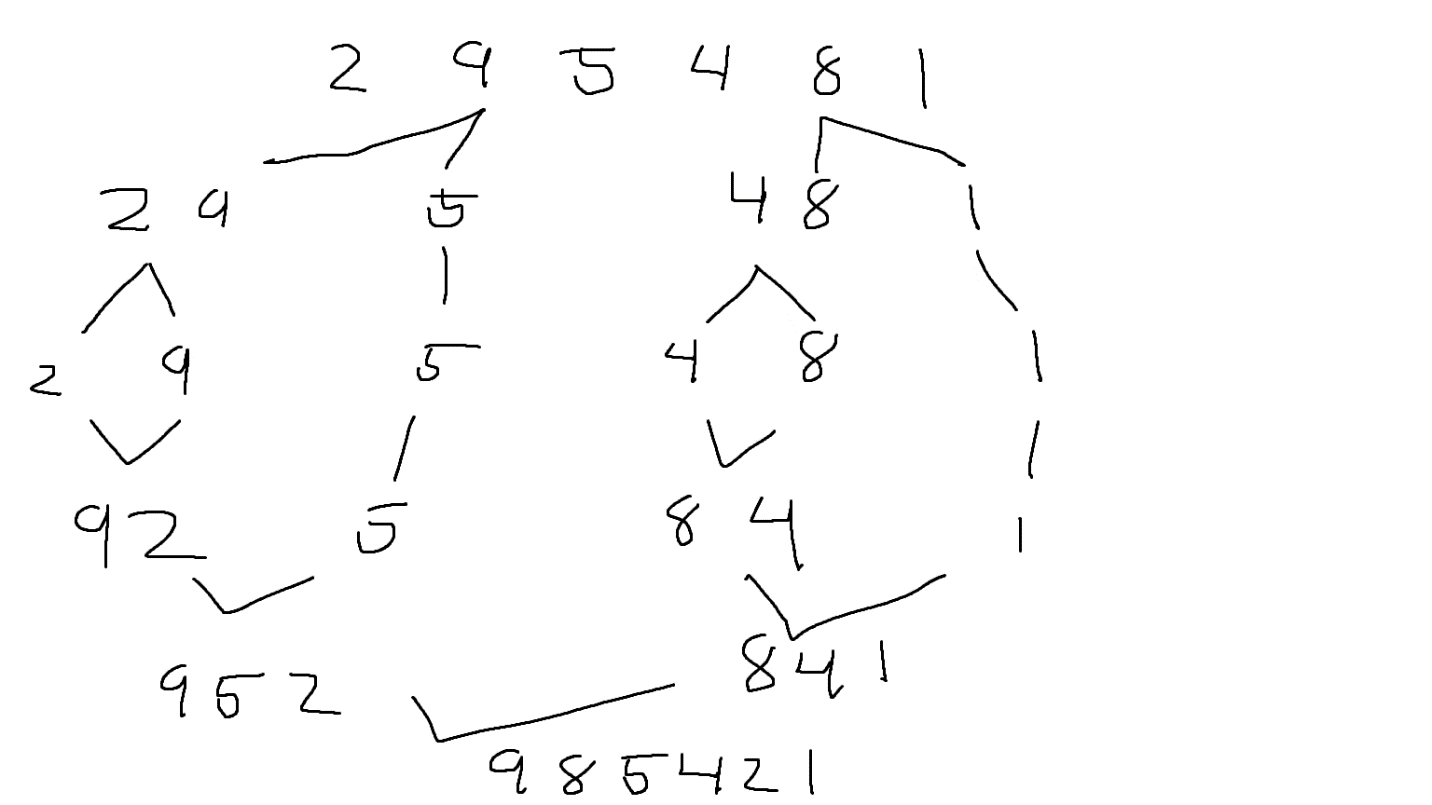 2 9 5 4 8 1
2 9 5 4 8 1
2 9 5 4 8 1
9 2 5 8 4 1
9 5 2 8 4 1
9 8 5 4 2 1